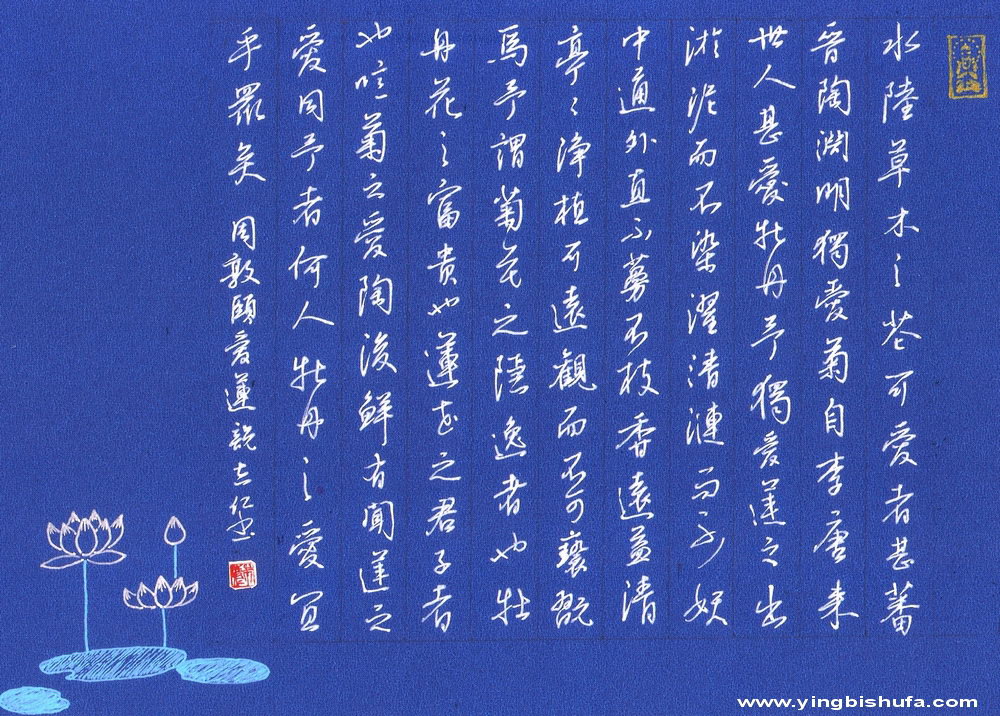 水陸草木之花可愛者甚蕃
晉陶淵明獨愛菊自李唐來
世人甚愛牡丹予獨愛蓮之出
淤泥而不染濯清漣而不妖
中通外直不蔓不枝香遠益清
亭〻淨植可遠觀而不可褻翫
焉予謂菊花之隱逸者也牡
丹花之富貴也蓮花之君子者
也噫菊之愛陶後鮮有聞蓮之
愛同予者何人牡丹之愛宜
乎眾矣
周敦頤愛蓮說志仁書
www.yingbishufa.com